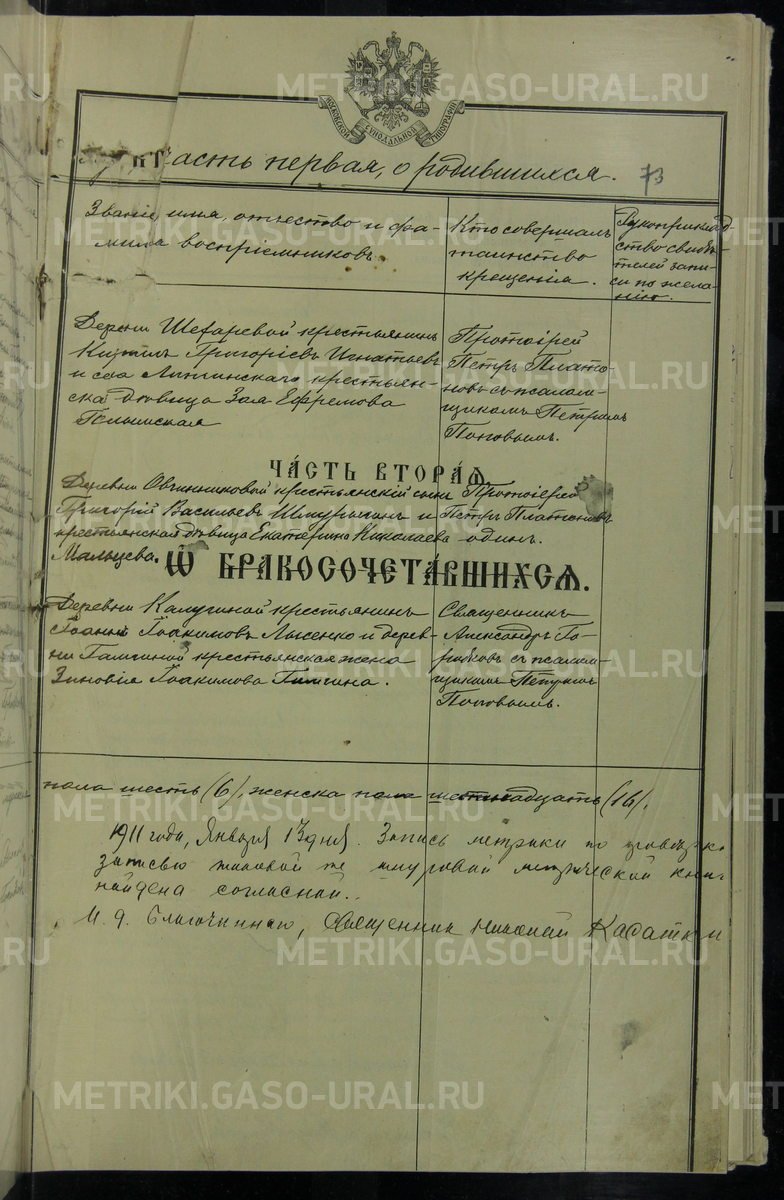 МОСКОВСКОЙ СУНОДАЛЬНОЙ ТИПОГРАФІИ
Часть первая, о родившихся.
73
Званіе, имя, отчество и фа-
милія воспріемниковъ.
Кто совершалъ
таинство
крещенія.
Рукоприклад-
ство свидѣ-
телей запи-
си по жела-
нію.
Деревни крестьянинъ
Григоріевъ Игнатьевъ
и села крестьян-
ская дѣвица Зоя Ефремова
Протоіерей
Петръ Плато-
новъ съ псалом-
щикомъ Петромъ
Поповымъ.
ЧАСТЬ ВТОРАЯ
Деревни Овчинниковой крестьянскій сынъ
Григорій Васильевъ и
крестьянская дѣвица Екатерина Николаева
Мальцева.
Протоіерей
Петръ Платоновъ
одинъ.
Ѡ БРАКОСОЧЕТАВШИХСЯ.
Деревни Калугиной крестьянинъ
Іоаннъ Іоакимовъ Лысенко и дерев-
ни крестьянская жена
Зиновія Іоакимова
Священникъ
Александръ
съ псалом-
щикомъ Петромъ
Поповымъ.
пола шесть (6), женска пола шестнадцать (16).
1911 года, Января 13 дня. Запись метрики по
записью же шнуровой книг
найдена согласной.
И. д. Благочиннаго, Священникъ Николай Касаткин
METRIKI.GASO-URAL.RU